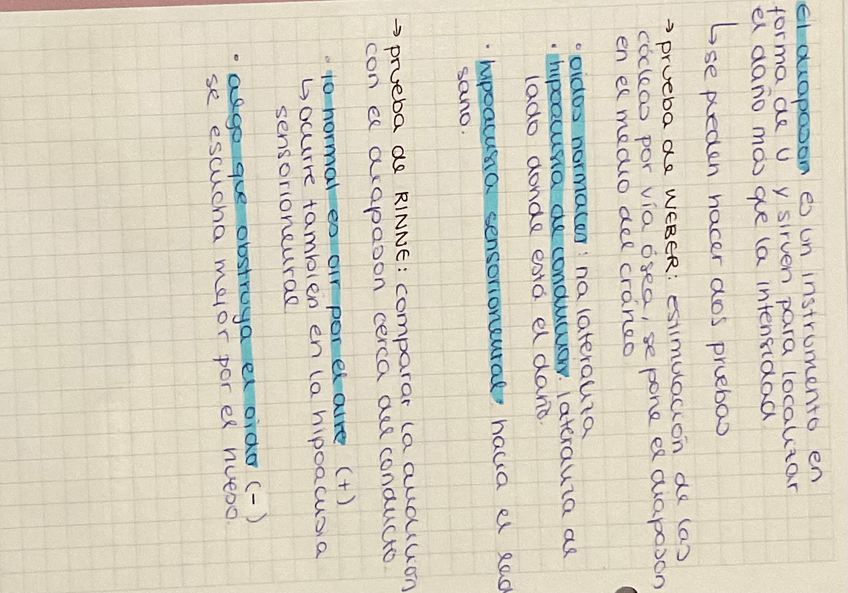 El diapason es un instrumento en
forma de U y sirven para localizar
el daño mas que la intensidad
↳ se pueden hacer dos pruebas
→ prueba de WEBER: estimulación de las
cócleas por vía ósea, se pone el diapason
en el medio del cráneo
• oidos normales: no lateraliza
• hipoacusia de conduccion: lateraliza al
lado donde está el daño.
• hipoacusia sensorioneural hacia el lad
sano.
→ prueba de RINNE: comparar la audicion
con el diapason cerca del conducto
• lo normal es oir por el aire (+)
↳ ocurre tambien en la hipoacusia
sensorioneural
• algo que obstruya el oido (-)
se escucha mejor por el hueso.